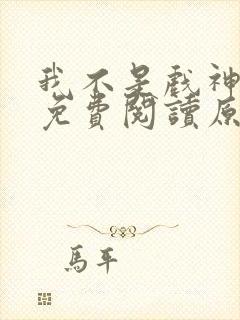 我不是戲神
免費閱讀原
馬平